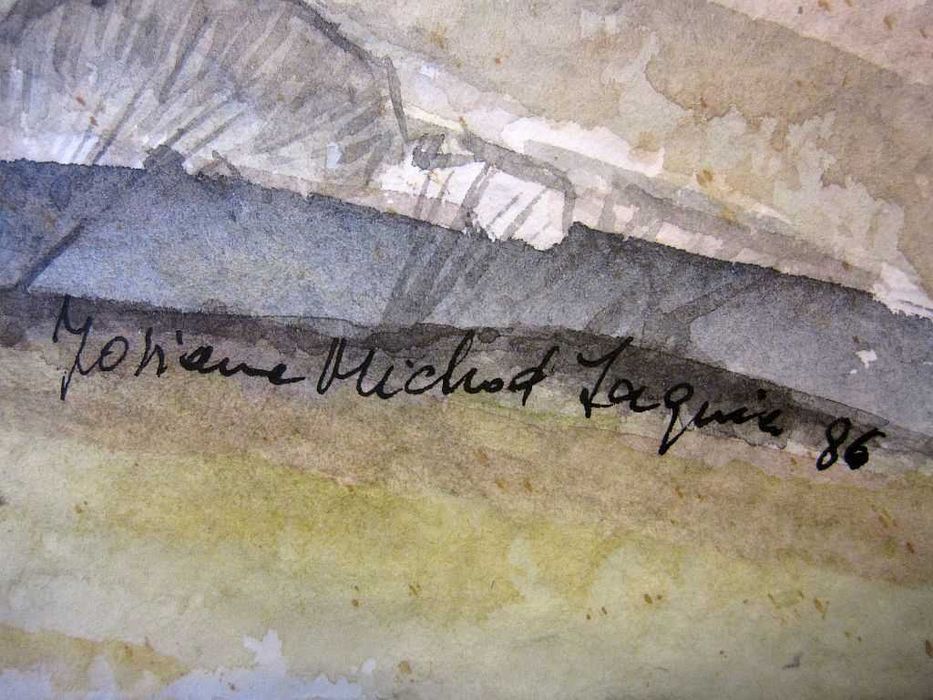 Josiane Michod Jaquier 86